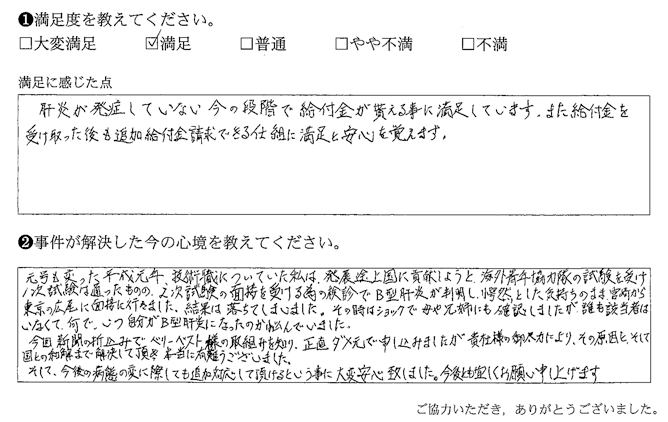 ❶満足度を教えてください。
□大変満足 ☑満足 □普通 □やや不満 □不満
満足に感じた点
肝炎が発症していない今の段階で給付金が貰える事に満足しています。また給付金を
受け取った後も追加給付金請求できる仕組に満足と安心を覚えます。
❷事件が解決した今の心境を教えてください。
元号も変った平成元年、技術職についていた私は、発展途上国に貢献しようと、海外青年協力隊の試験を受け
1次試験は通ったものの、2次試験の面接を受ける為の検診でB型肝炎が判明し、愕然とした気持ちのまま宮崎から
東京の広尾に面接に行きました、結果は落ちてしまいました。その時はショックで母や兄姉にも確認しましたが誰も該当者は
いなくて、何で、いつ自分がB型肝炎になったのか悩んでいました。
今回新聞の折込みでベリーベスト様の取組みを知り、正直ダメ元で申し込みましたが貴社様の御尽力により、その原因と、そして
国との和解まで解決して頂き本当に有難うございました。
そして、今後の病態の変に際しても追加対応して頂けるという事に大変安心致しました。今後とも宜しくお願い申し上げます
ご協力いただき，ありがとうございました。